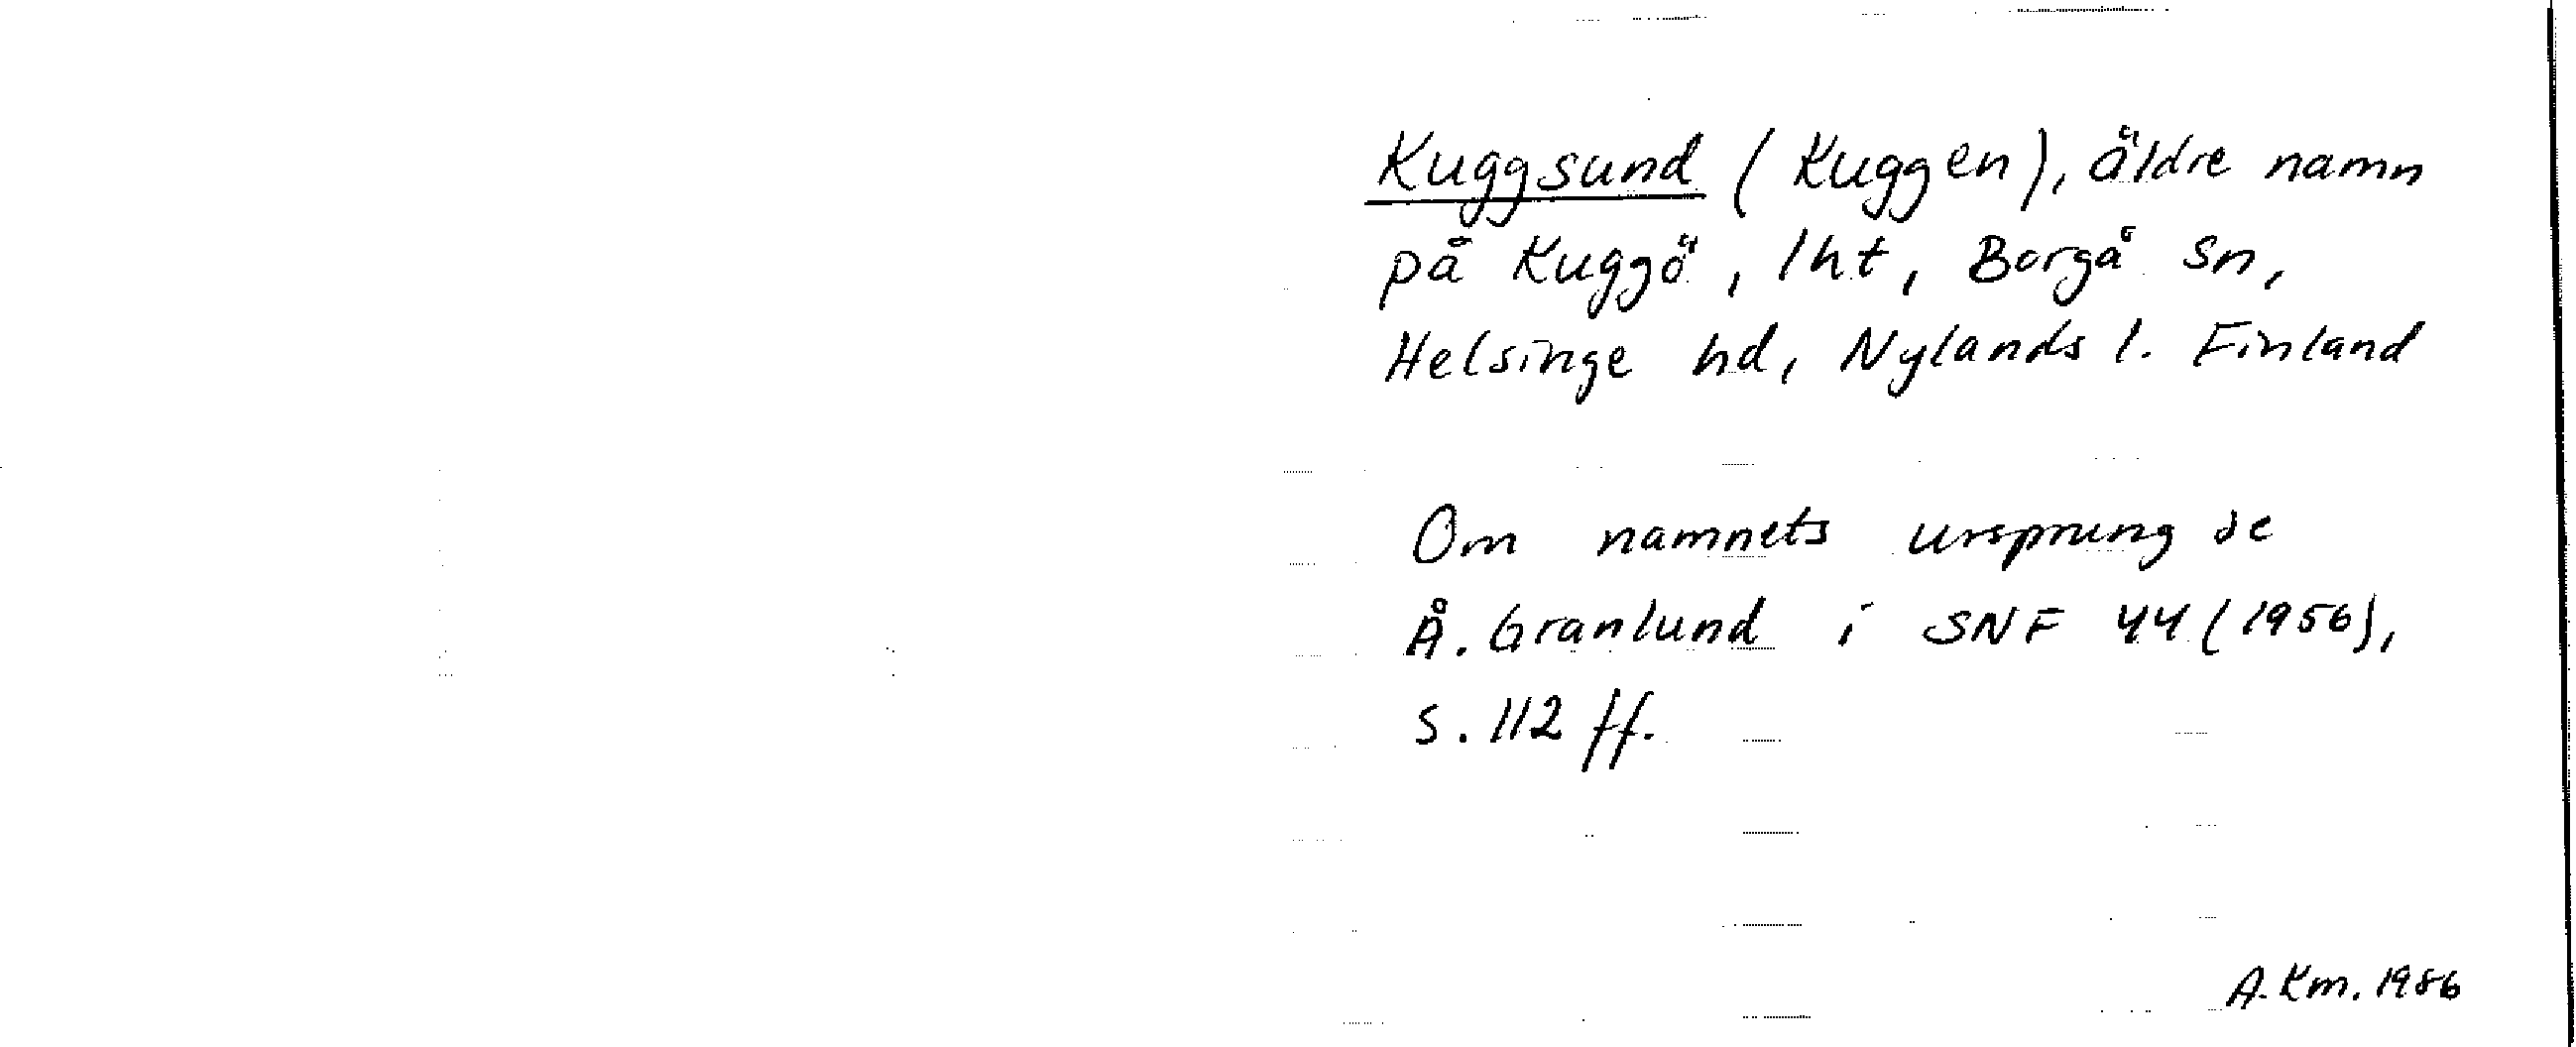 Kuggsund (Kuggen), äldre namn
på Kuggö, lht, Borgå sn,
Helsinge hd, Nylands l. Finland
Om namnets ursprung se
Å. Granlund i SNF 44 (1956),
s. 112 ff.
A. Km. 1986